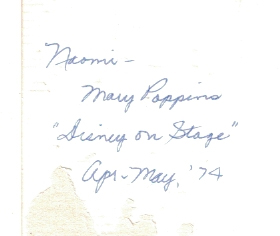 Naomi -
Mary Poppins
"Disney on Stage"
Apr-May, '74